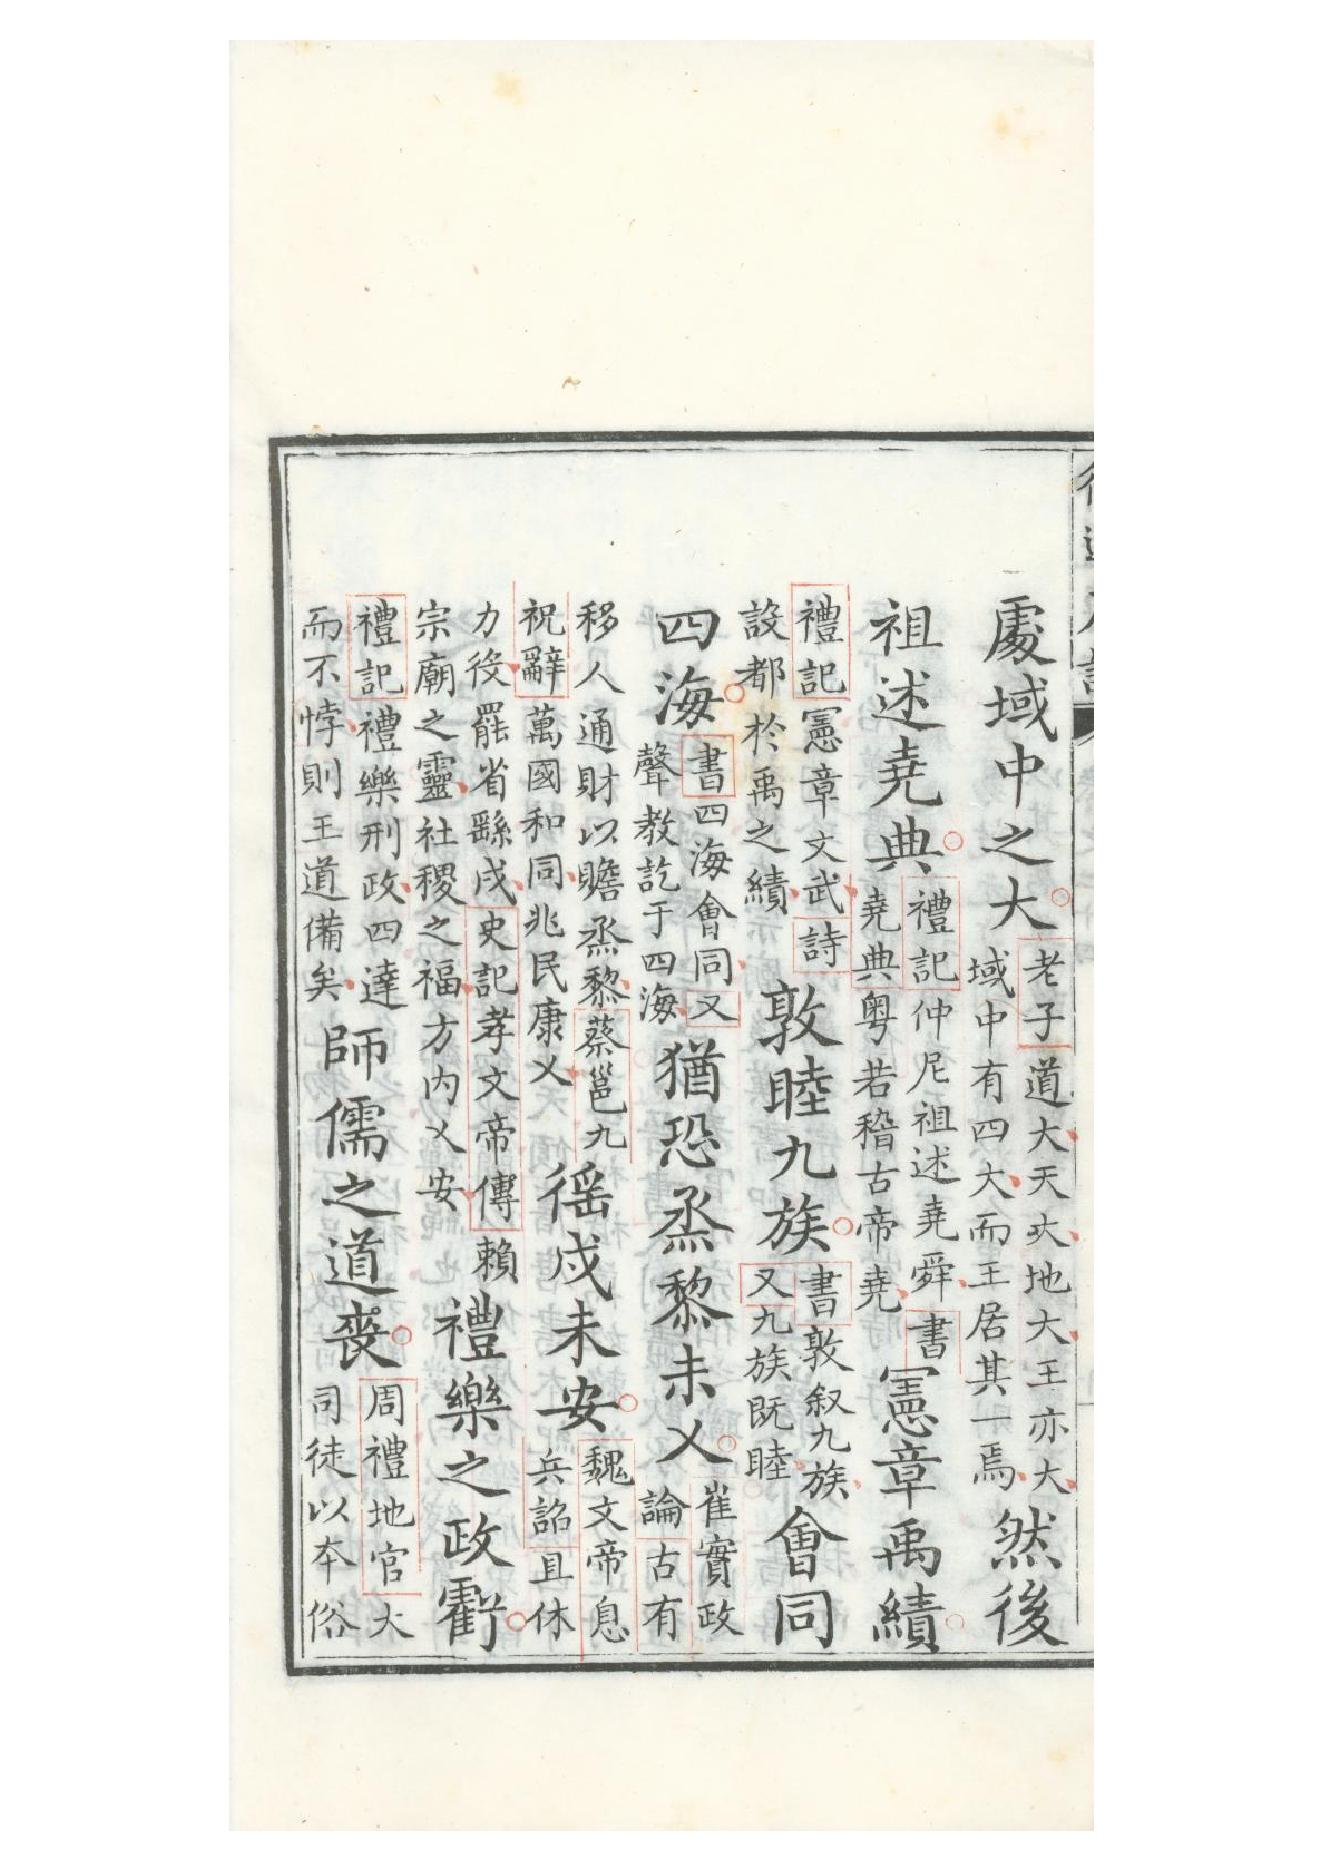 處域中之大老子道大天大地大王亦大域中有四大而王居其一焉然後
祖述堯典禮記仲尼祖述堯舜書堯典粤若稽古帝堯憲章禹績
禮記憲章文武詩設都於禹之績敦睦九族書敦叙九族又九族既睦會同
四海書四海會同又聲教訖于四海猶恐烝黎未乂崔實政論古有
移人通財以贍烝黎蔡邕九祝辭萬國和同兆民康乂徭戍未安魏文帝息兵詔且休
力役罷省繇戍史記孝文帝傳賴宗廟之靈社稷之福方内乂安禮樂之政虧
禮記禮樂刑政四達而不悖則王道備矣師儒之道喪周禮地官大司徒以本俗